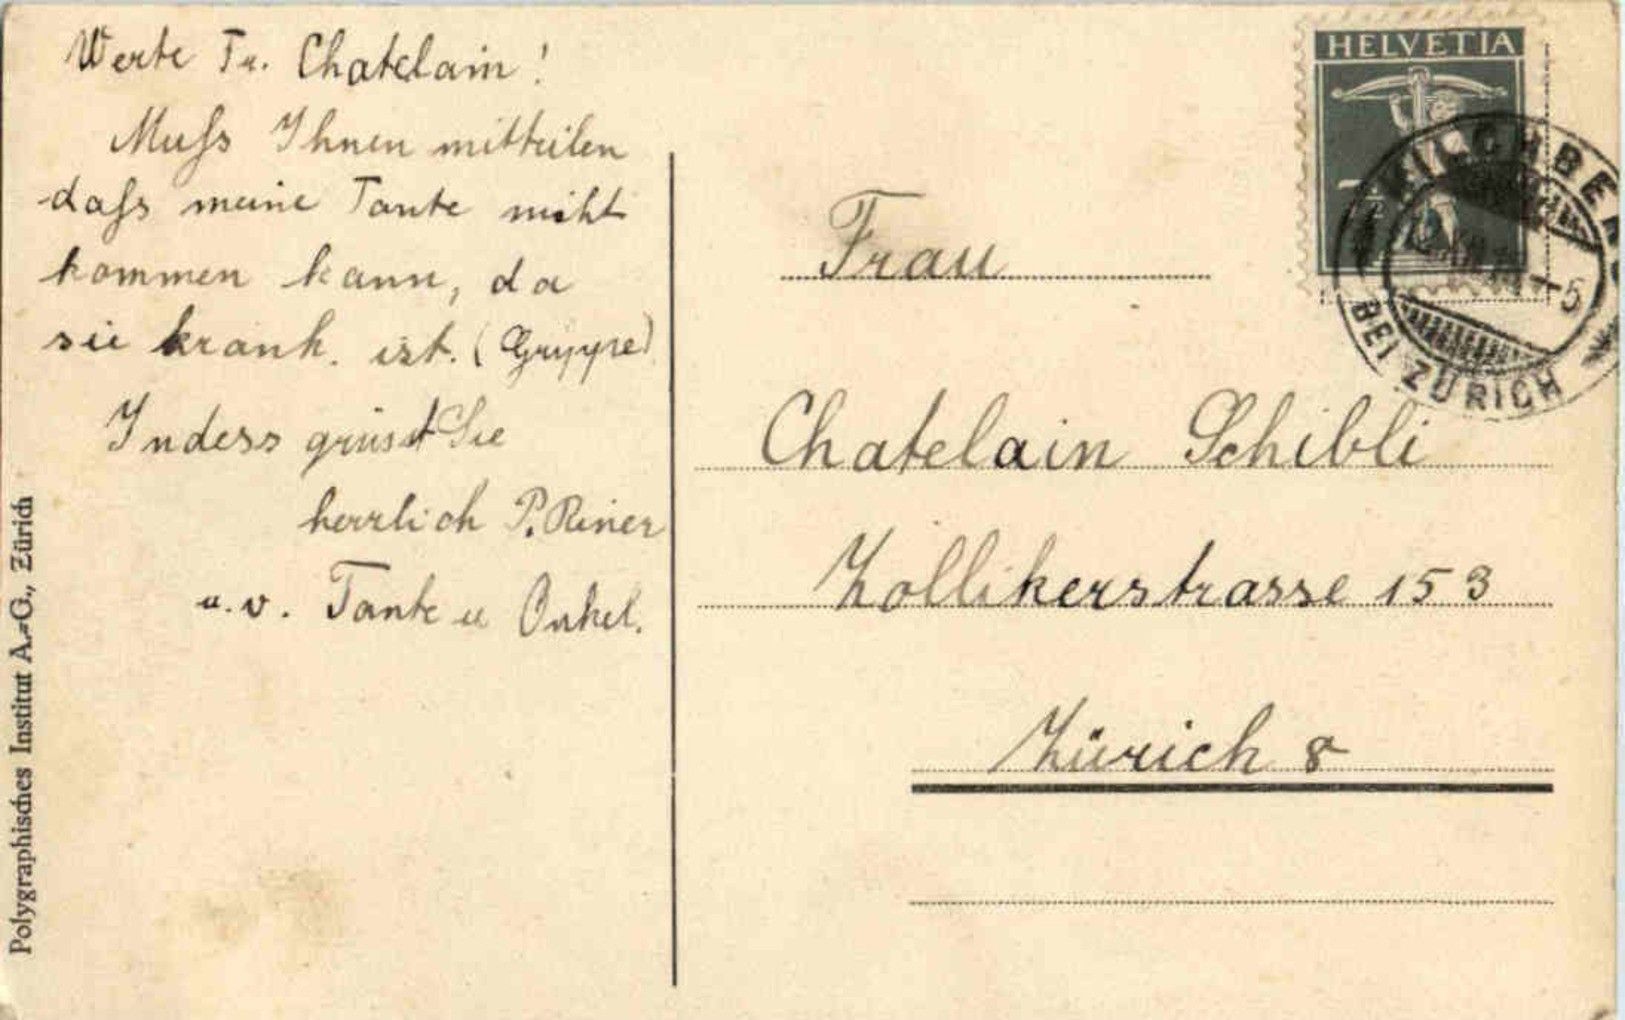 Werte Fr. Chatelain!
Muss Ihnen mitteilen
dass meine Tante nicht
kommen kann, da
sie krank. ist. (Gryppe)
Indess grüsst Sie
herzlich P. Riner
u. v. Tante u Onkel.
Polygraphisches Institut A.-G., Zürich
HELVETIA
7½
KILCHBERG
BEI ZÜRICH
-5
Frau
Chatelain Schibli
Zollikerstrasse 153
Zürich 8